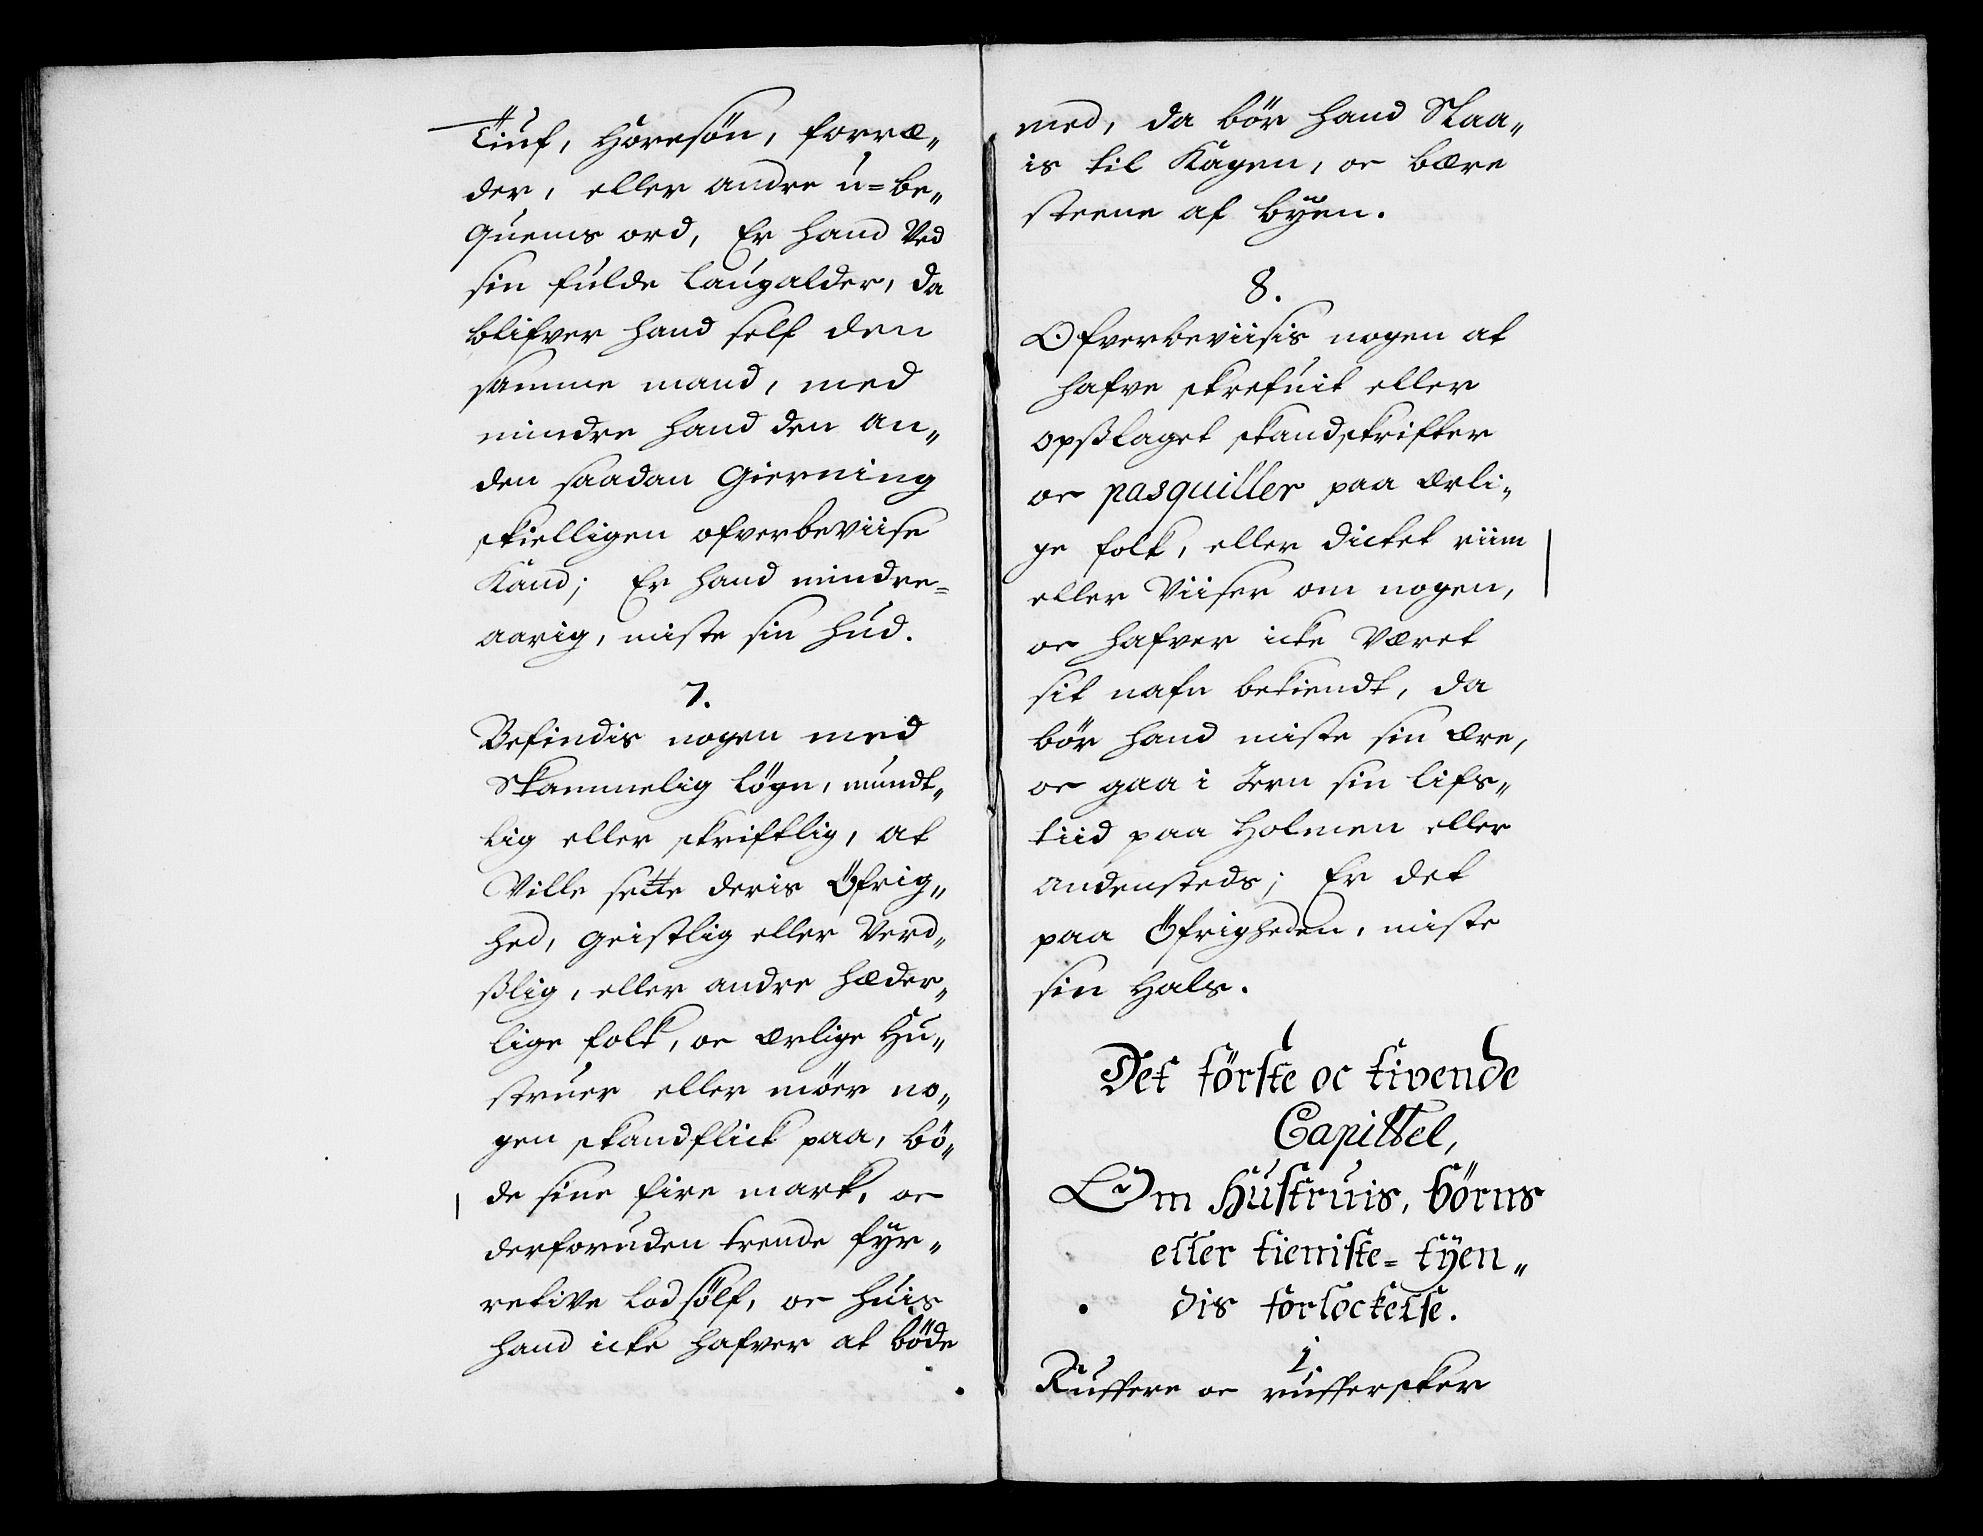 Tiuf, Horesön, forræ„
der, eller andre u=be„
quems ord, Er hand Ved
sin fulde Laugalder, da
blifver hand self den
samme mand, med
mindre hand den an„
den saadan Gierning
skielligen ofverbeviise
Kand; Er hand mindre=
aarig, miste sin hud.
7.
Befindis nogen med
Skammelig lögn, mundt„
lig eller skriftlig, at
Ville sette deris Öfrig„
hed, geistlig eller Verd„
slig, eller andre hæder„
lige folk, oc ærlige Hu„
struer eller möer no„
gen skandflick paa, bö„
de sine fire mark, oc
derforuden trende fyr„
retive Lod sölf, oc huis
hand icke hafver at böde
med, da bör hand Slaa„
is til Kagen, oc bære
steene af byen.
8.
Ofverbeviisis nogen at
hafve skrefuit eller
opslaget skandskrifter
oc pasquiller paa ærli„
ge folk, eller dictet riim
eller Viiser om nogen,
oc hafver icke Været
sit nafn bekiendt, da
bör hand miste sin ære,
oc gaa i Jern sin lifs„
tiid paa Holmen eller
andensteds; Er det
paa Öfrigheden, miste
sin Hals.
Det förste oc tivende
Capittel,
Om Hustruis, börns
eller tieniste= tÿen„
dis forlockelse.
1.
Ruffere oc ruffersker